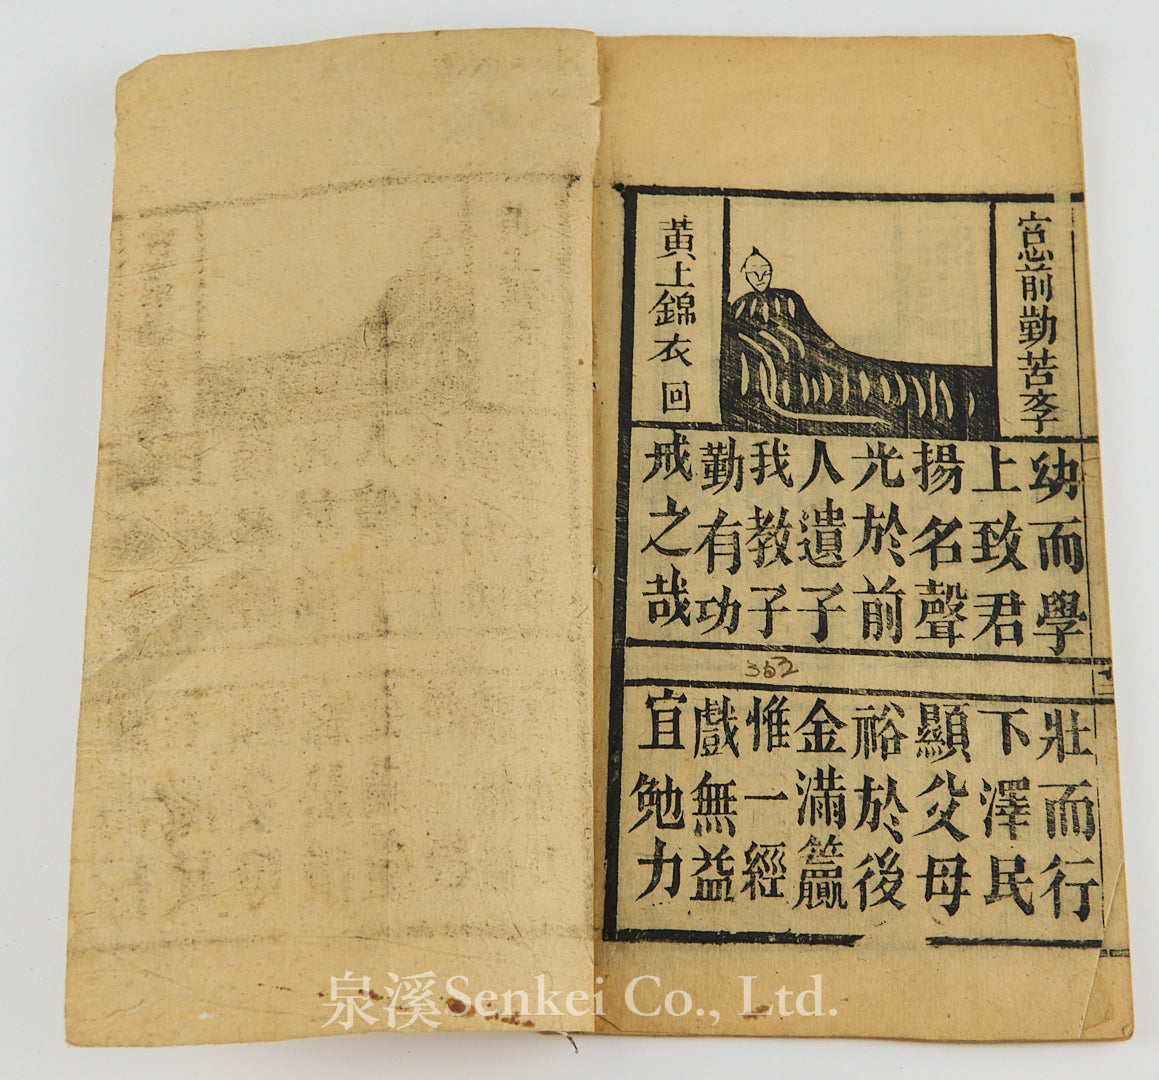 窓前勤苦斈
黃上錦衣回
幼而學
壯而行
上致君
下澤民
揚名聲
顯父母
光於前
裕於後
人遺子
金滿籯
我教子
惟一經
勤有功
戲無益
戒之哉
宜勉力
二
363
泉溪Senkei Co., Ltd.